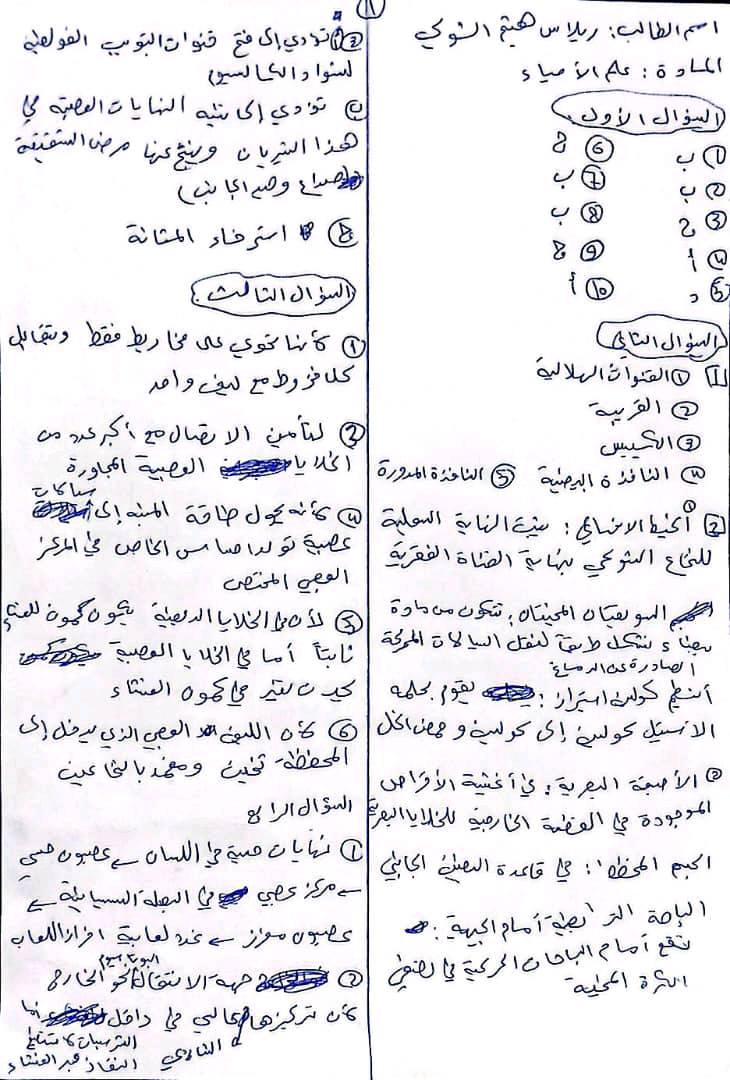 اسم الطالب: ريلاس هيثم الشوكي
المادة: علم الأحياء
السؤال الأول:
① ب
② ب
③ ج
④ أ
⑤ د
⑥ ج
⑦ ب
⑧ ب
⑨ ج
⑩ أ
السؤال الثاني
1 ① القنوات الهلالية
② القريبة
③ الكييس
④ النافذة البيضية ⑤ النافذة المدورة
2 ① الخيط الانتهائي: يثبت النهاية السفلية
للنخاع الشوكي بنهاية القناة الفقرية
السويقتان المخيتان: تتكون من مادة
بيضاء تشكل طريقاً لنقل السيالات المحركة
الصادرة عن الدماغ
أنظيم كولين استراز: يقوم بحلمه
الأستيل كولين إلى كولين وحمض الخل
② الأصبغة البصرية: في أغشية الأقراص
الموجودة في القطعة الخارجية للخلايا البصرية
الجسم المخطط: في قاعدة البطين الجانبي
الباحة الترابطية أمام الجبهية:
تقع أمام الباحات الحركية في نصفي
الكرة المخية
1
③ أ تؤدي إلى فتح قنوات التبويب الفولطية
لشوارد الكالسيوم
ب تؤدي إلى تنبيه النهايات العصبية في
هذا الشريان وينتج عنها مرض الشقيقة
(صداع وحيد الجانب)
ج استرخاء المثانة
السؤال الثالث:
① لأنها تحوي على مخاريط فقط وتتقابل
كل مخروط مع ليف واحد
② لتأمين الاتصال مع أكبر عدد من
الخلايا العصبية المجاورة
④ لأنه يحول طاقة المنبه إلى سيالات
عصبية تولد احساس الخاص في المركز
العصبي المختص
⑤ لأن في الخلايا الدبقية يكون كمون الغشاء
ثابتاً أما في الخلايا العصبية
يحدث تغير في كمون الغشاء
⑥ لأن الليف العصبي الذي يدخل إلى
المحفظة ثخين ومغمد بالنخاعين
السؤال الرابع
① نهايات حسية في اللسان ← عصبون حسي
← مركز عصبي في البصلة السيسائية ←
عصبون مفرز ← غدد لعابية افراز اللعاب
② جهة الانتقال البوتاسيوم نحو الخارج
لأن تركيزها عالي في داخل أما
الشرسبات لا تستطيع
النفاذ عبر الغشاء